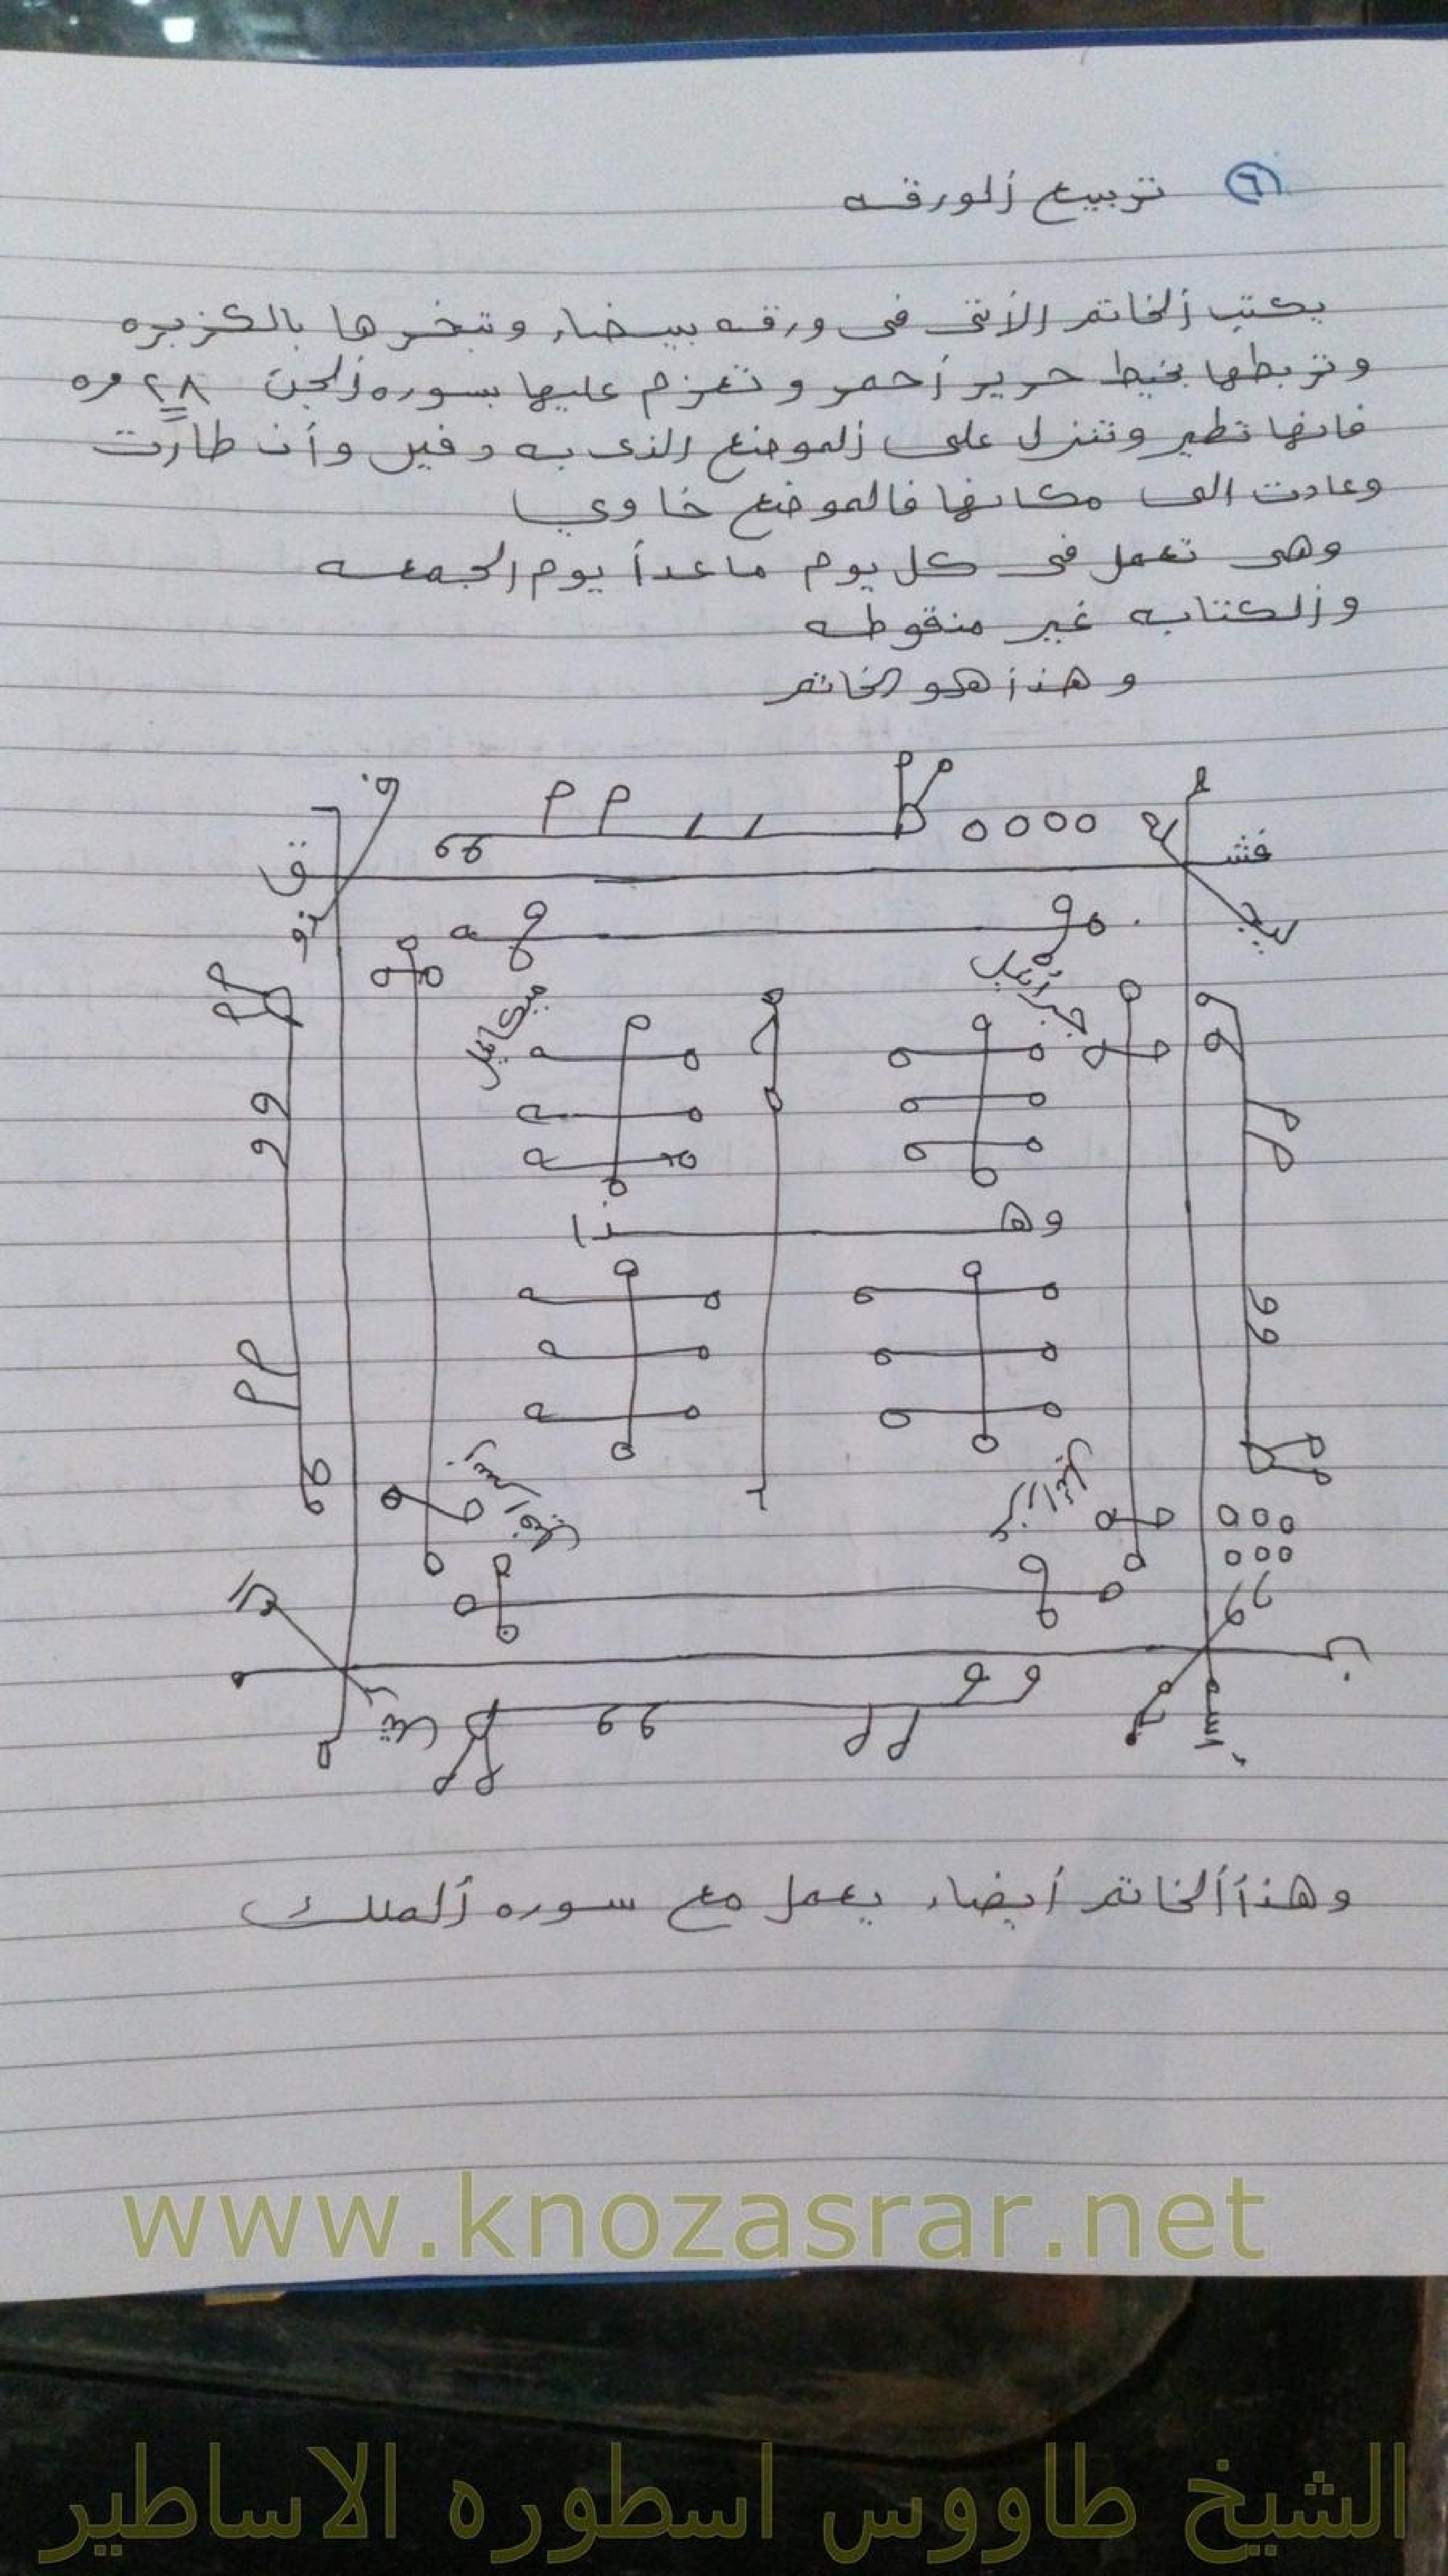 ٦ تربيع ألورقه
يكتب ألخاتم الأتى فى ورقه بيضاء وتبخرها بالكزبره
وتربطها بخيط حرير أحمر وتعزم عليها بسوره ألجن ٢٨ مره
فانها تطير وتنزل على ألموضع الذى به دفين وأن طارت
وعادت الى مكانها فالموضع خاوي
وهى تعمل فى كل يوم ماعدأ يوم الجمعه
وألكتابه غير منقوطه
وهذأ هو الخاتم
ق
جبرائيل
ميكائيل
وهذا
وهذأ ألخاتم أيضاء يعمل مع سوره ألملك
www.knozasrar.net
الشيخ طاووس اسطوره الاساطير